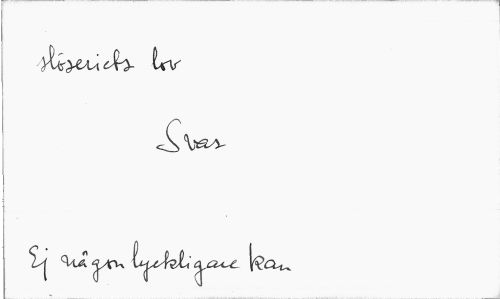 slöseriets lov
Svar
Ej någon lyckligare kan